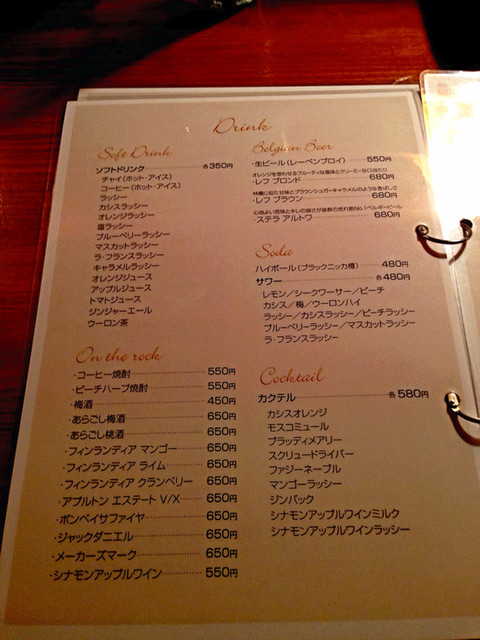 Drink
Soft Drink
ソフトドリンク 各350円
チャイ(ホット・アイス)
コーヒー(ホット・アイス)
ラッシー
カシスラッシー
オレンジラッシー
塩ラッシー
ブルーベリーラッシー
マスカットラッシー
ラ・フランスラッシー
キャラメルラッシー
オレンジジュース
アップルジュース
トマトジュース
ジンジャーエール
ウーロン茶
On the rock
・コーヒー焼酎 550円
・ピーチハーブ焼酎 550円
・梅酒 450円
・あらごし梅酒 650円
・あらごし桃酒 650円
・フィンランディア マンゴー 650円
・フィンランディア ライム 650円
・フィンランディア クランベリー 650円
・アプルトン エステート V/X 650円
・ボンベイサファイヤ 650円
・ジャックダニエル 650円
・メーカーズマーク 650円
・シナモンアップルワイン 550円
Belgian Beer
・生ビール(レーベンブロイ) 550円
オレンジを思わせるフルーティな風味とクリーミーな口当たり
・レフ ブロンド 680円
林檎に似た甘味とブラウンシュガーキャラメルのような香ばしさ
・レフ ブラウン 680円
心地よい苦味とキレの良さが抜群の売れ筋No.1ベルギービール
・ステラ アルトワ 680円
Soda
ハイボール(ブラックニッカ樽) 480円
サワー 各480円
レモン/シークワーサー/ピーチ
カシス/梅/ウーロンハイ
ラッシー/カシスラッシー/ピーチラッシー
ブルーベリーラッシー/マスカットラッシー
ラ・フランスラッシー
Cocktail
カクテル 各580円
カシスオレンジ
モスコミュール
ブラッディメアリー
スクリュードライバー
ファジーネーブル
マンゴーラッシー
ジンバック
シナモンアップルワインミルク
シナモンアップルワインラッシー